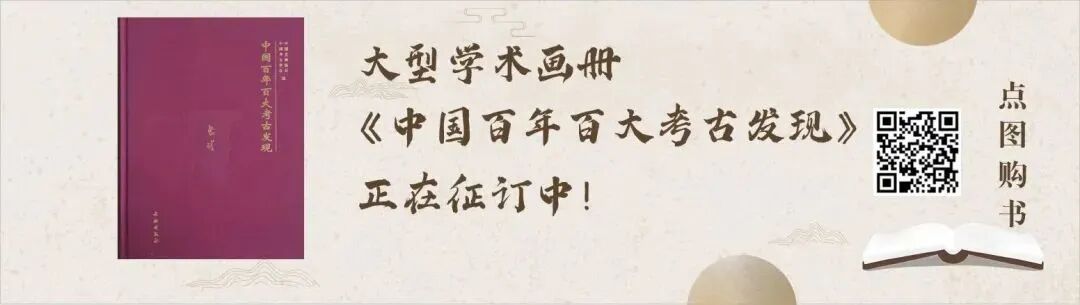 大型学术画册
《中国百年百大考古发现》
正在征订中！
点图购书
中国百年百大考古发现
文物出版社